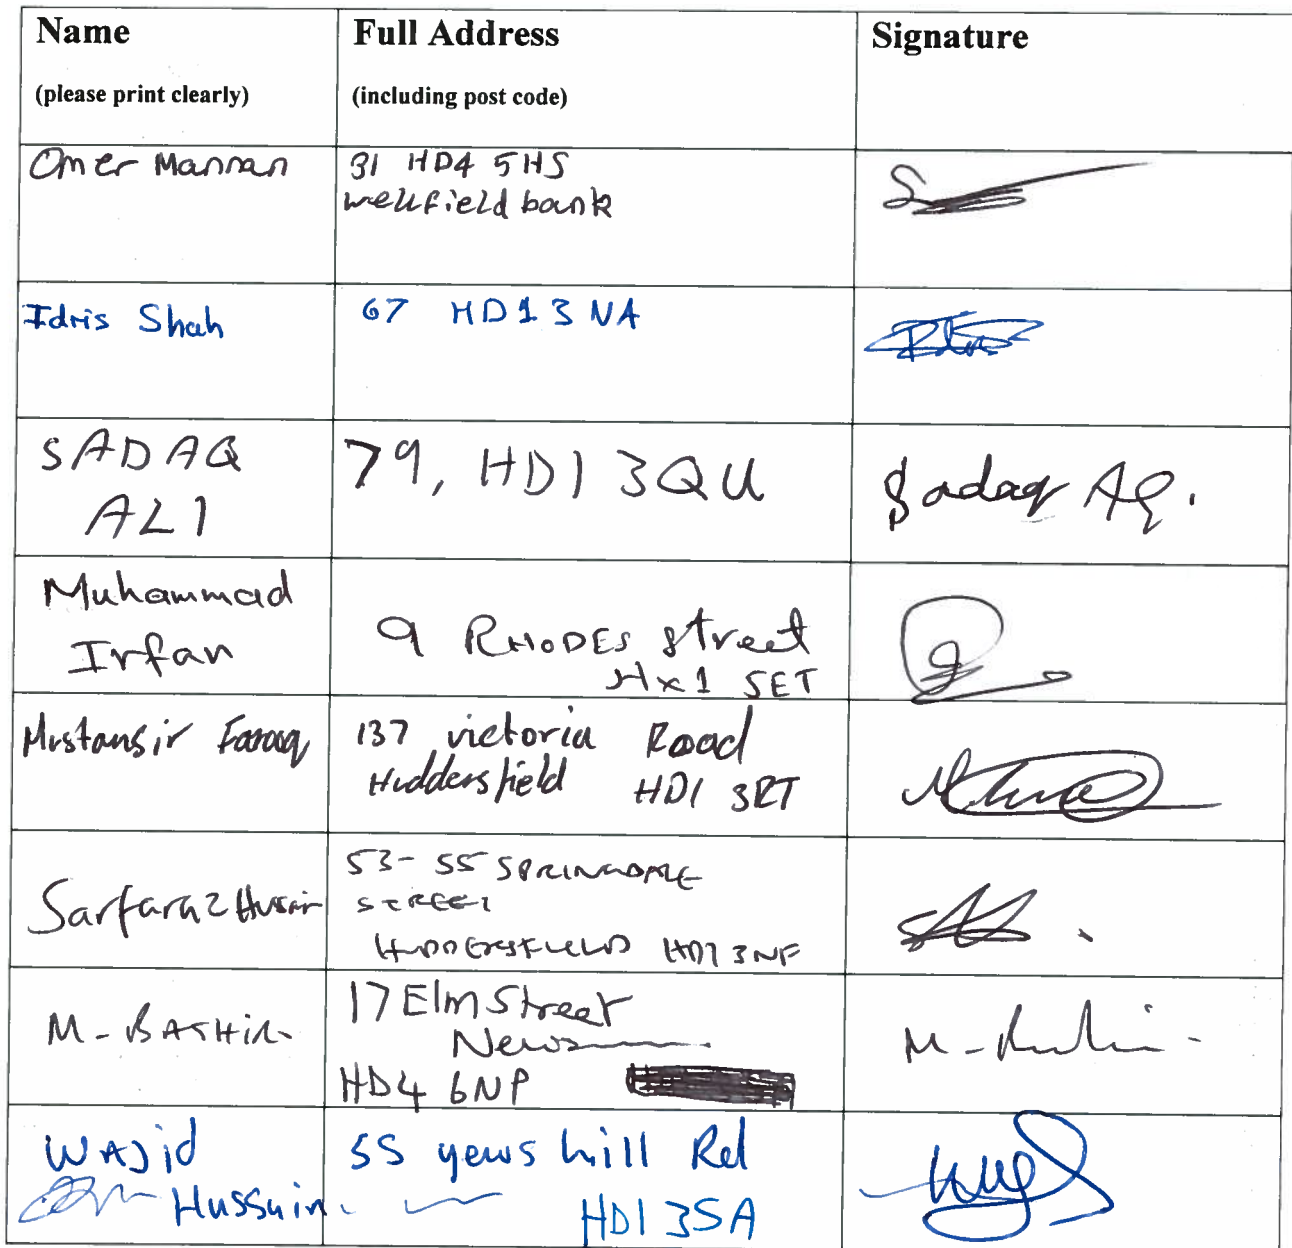 Name
(please print clearly)
Full Address
(including post code)
Signature
Omer Mannan
31 HD4 5HS
wellfield bank
Idris Shah
67 HD1 3NA
SADAQ
ALI
79, HD1 3QU
Sadaq
Muhammad
Irfan
9 RHODES street
Hx1 5ET
Mustansir Farooq
137 victoria Road
Huddersfield HD1 3RT
Sarfaraz Husain
53-55 SPRINGDALE
STREET
HUDDERSFIELD HD1 3NF
M-BASHIR
17 Elm Street
HD4 6NP
WAJid
Hussain
55 yews hill Rd
HD1 3SA